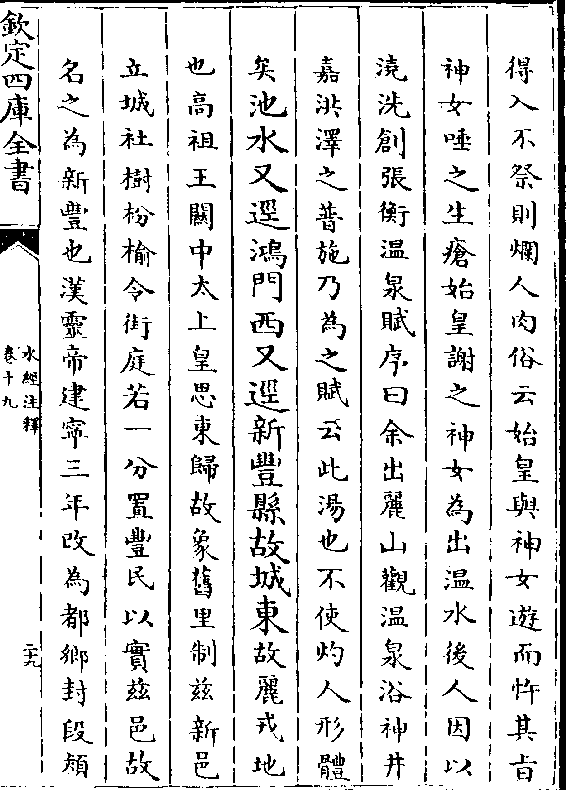 得入不祭則爛人肉俗云始皇與神女遊而忤其旨
神女唾之生瘡始皇謝之神女為出温水後人因以
澆洗創張衡温泉賦序曰余出麗山觀温泉浴神井
嘉洪澤之普施乃為之賦云此湯也不使灼人形體
矣池水又逕鴻門西又逕新豐縣故城東故麗戎地
也高祖王關中太上皇思東歸故象舊里制兹新邑
立城社樹枌榆令街庭若一分置豐民以實兹邑故
名之為新豐也漢靈帝建寧三年改為都鄉封段熲
欽定四庫全書
水經注釋
卷十九
二十九